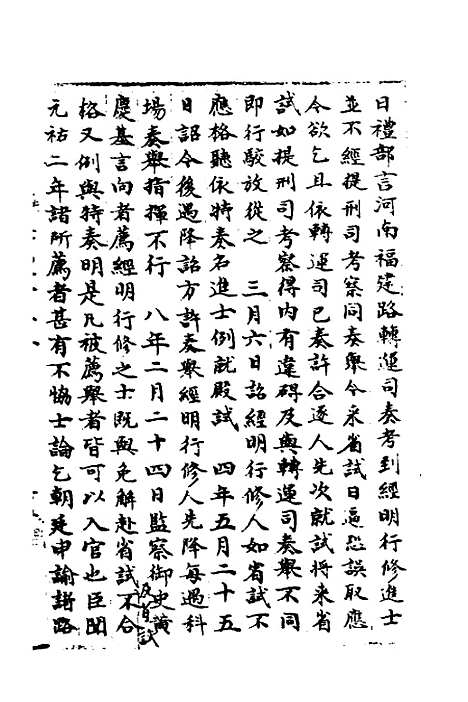 日禮部言河南福建路轉運司奏考到經明行修進士
並不經提刑司考察同奏舉今來省試日逼恐誤取應
今欲乞且依轉運司已奏許合逐人先次就試將來省
試如提刑司考察得內有違碍及與轉運司奏舉不同
即行駁放從之 三月六日詔經明行修人如省試不
應格聽依特奏名進士例就殿試 四年五月二十五
日詔今後遇降詔方許奏舉經明行修人先降每遇科
場奏舉指揮不行 八年二月二十四日監察御史黃
慶基言向者薦經明行修之士既與免解赴省試不合
及省試
格又例與特奏明是凡被薦舉者皆可以入官也臣聞
元祐二年諸所薦者甚有不恊士論乞朝廷申諭諸路